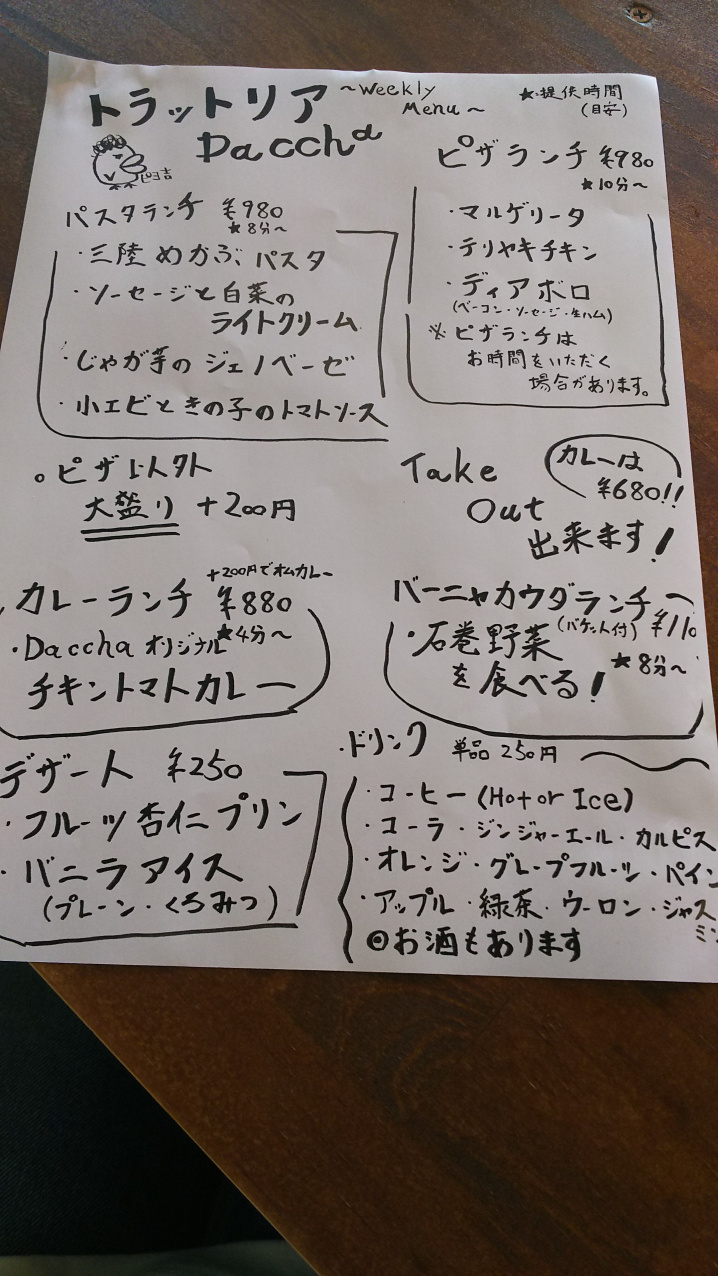 トラットリア
~Weekly
Menu~
Daccha
ピヨ吉
★:提供時間
(目安)
パスタランチ ¥980
★8分~
・三陸めかぶパスタ
・ソーセージと白菜の
ライトクリーム
・じゃが芋のジェノベーゼ
・小エビときの子のトマトソース
ピザランチ ¥980
★10分~
・マルゲリータ
・テリヤキチキン
・ディアボロ
(ベーコン・ソーセージ・生ハム)
※ピザランチは
お時間をいただく
場合があります。
○ピザ以外
大盛り +200円
Take
Out
出来ます!
カレーは
¥680!!
+200円でオムカレー
カレーランチ ¥880
・Daccha オリジナル ★4分~
チキントマトカレー
バーニャカウダランチ
(バケット付) ¥110
・石巻野菜
を食べる! ★8分~
デザート ¥250
・フルーツ杏仁プリン
・バニラアイス
(プレーン・くろみつ)
・ドリンク 単品250円
・コーヒー(Hot or Ice)
・コーラ・ジンジャーエール・カルピス
・オレンジ・グレープフルーツ・パイン
・アップル・緑茶・ウーロン・ジャス
ミン
◎お酒もあります